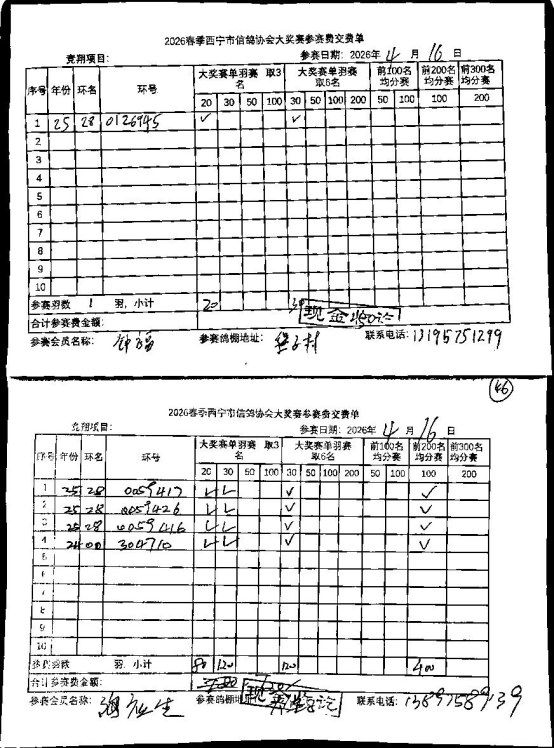 2026春季西宁市信鸽协会大奖赛参赛费交费单
竞翔项目： 参赛日期：2026年 4 月 16 日
序号 年份 环名 环号 大奖赛单羽赛 取3名 大奖赛单羽赛 取6名 前100名均分赛 前200名均分赛 前300名均分赛
20 30 50 100 30 50 100 200 50 100 100 200
1 25 28 0126945 ✓ ✓
2
3
4
5
6
7
8
9
10
参赛羽数 1 羽，小计 20 30
合计参赛费金额： 现金收讫
参赛会员名称： 参赛鸽棚地址： 联系电话：13195751299
46
2026春季西宁市信鸽协会大奖赛参赛费交费单
竞翔项目： 参赛日期：2026年 4 月 16 日
序号 年份 环名 环号 大奖赛单羽赛 取3名 大奖赛单羽赛 取6名 前100名均分赛 前200名均分赛 前300名均分赛
20 30 50 100 30 50 100 200 50 100 100 200
1 25 28 0059417 ✓ ✓ ✓ ✓
2 25 28 0059426 ✓ ✓ ✓ ✓
3 25 28 0059416 ✓ ✓ ✓ ✓
4 24 00 304710 ✓ ✓ ✓ ✓
5
6
7
8
9
10
参赛羽数 羽，小计 80 120 120 400
合计参赛费金额：
参赛会员名称： 参赛鸽棚地址： 联系电话：13897589139